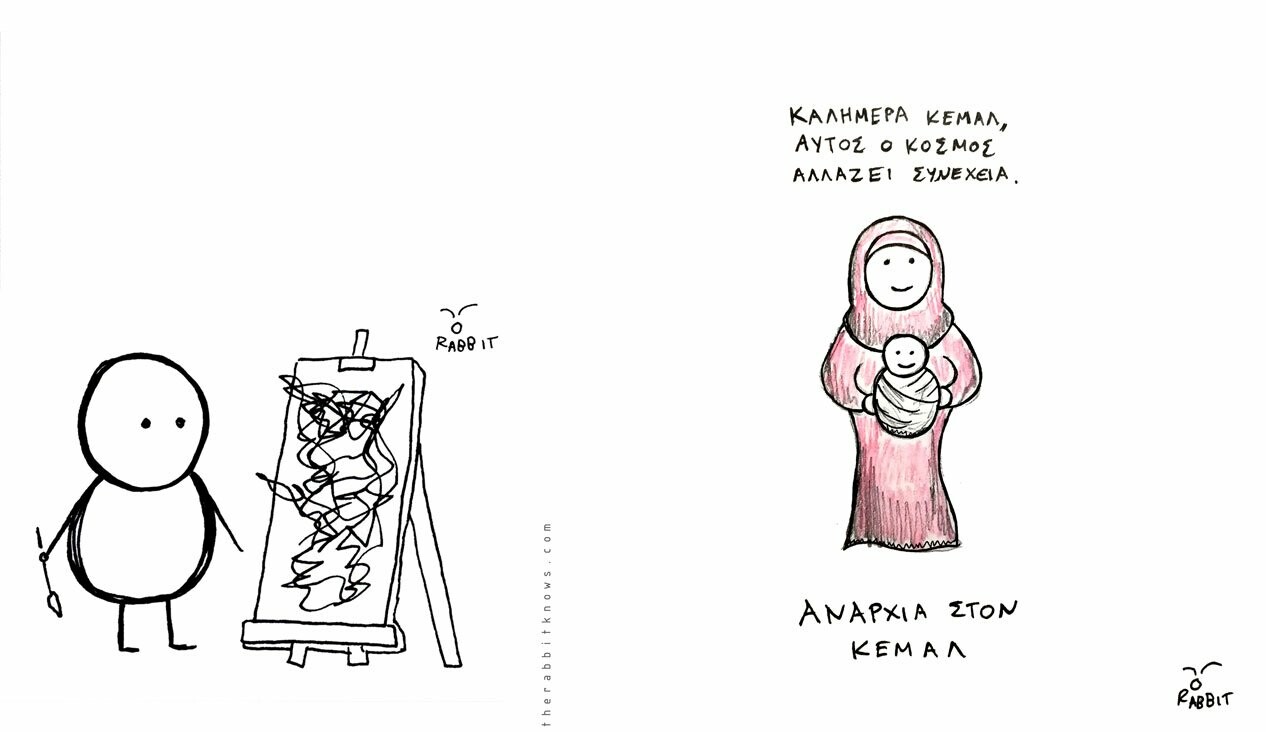 RABBIT
therabbitknows.com
ΚΑΛΗΜΕΡΑ ΚΕΜΑΛ,
ΑΥΤΟΣ Ο ΚΟΣΜΟΣ
ΑΛΛΑΖΕΙ ΣΥΝΕΧΕΙΑ.
ΑΝΑΡΧΙΑ ΣΤΟΝ
ΚΕΜΑΛ
RABBIT